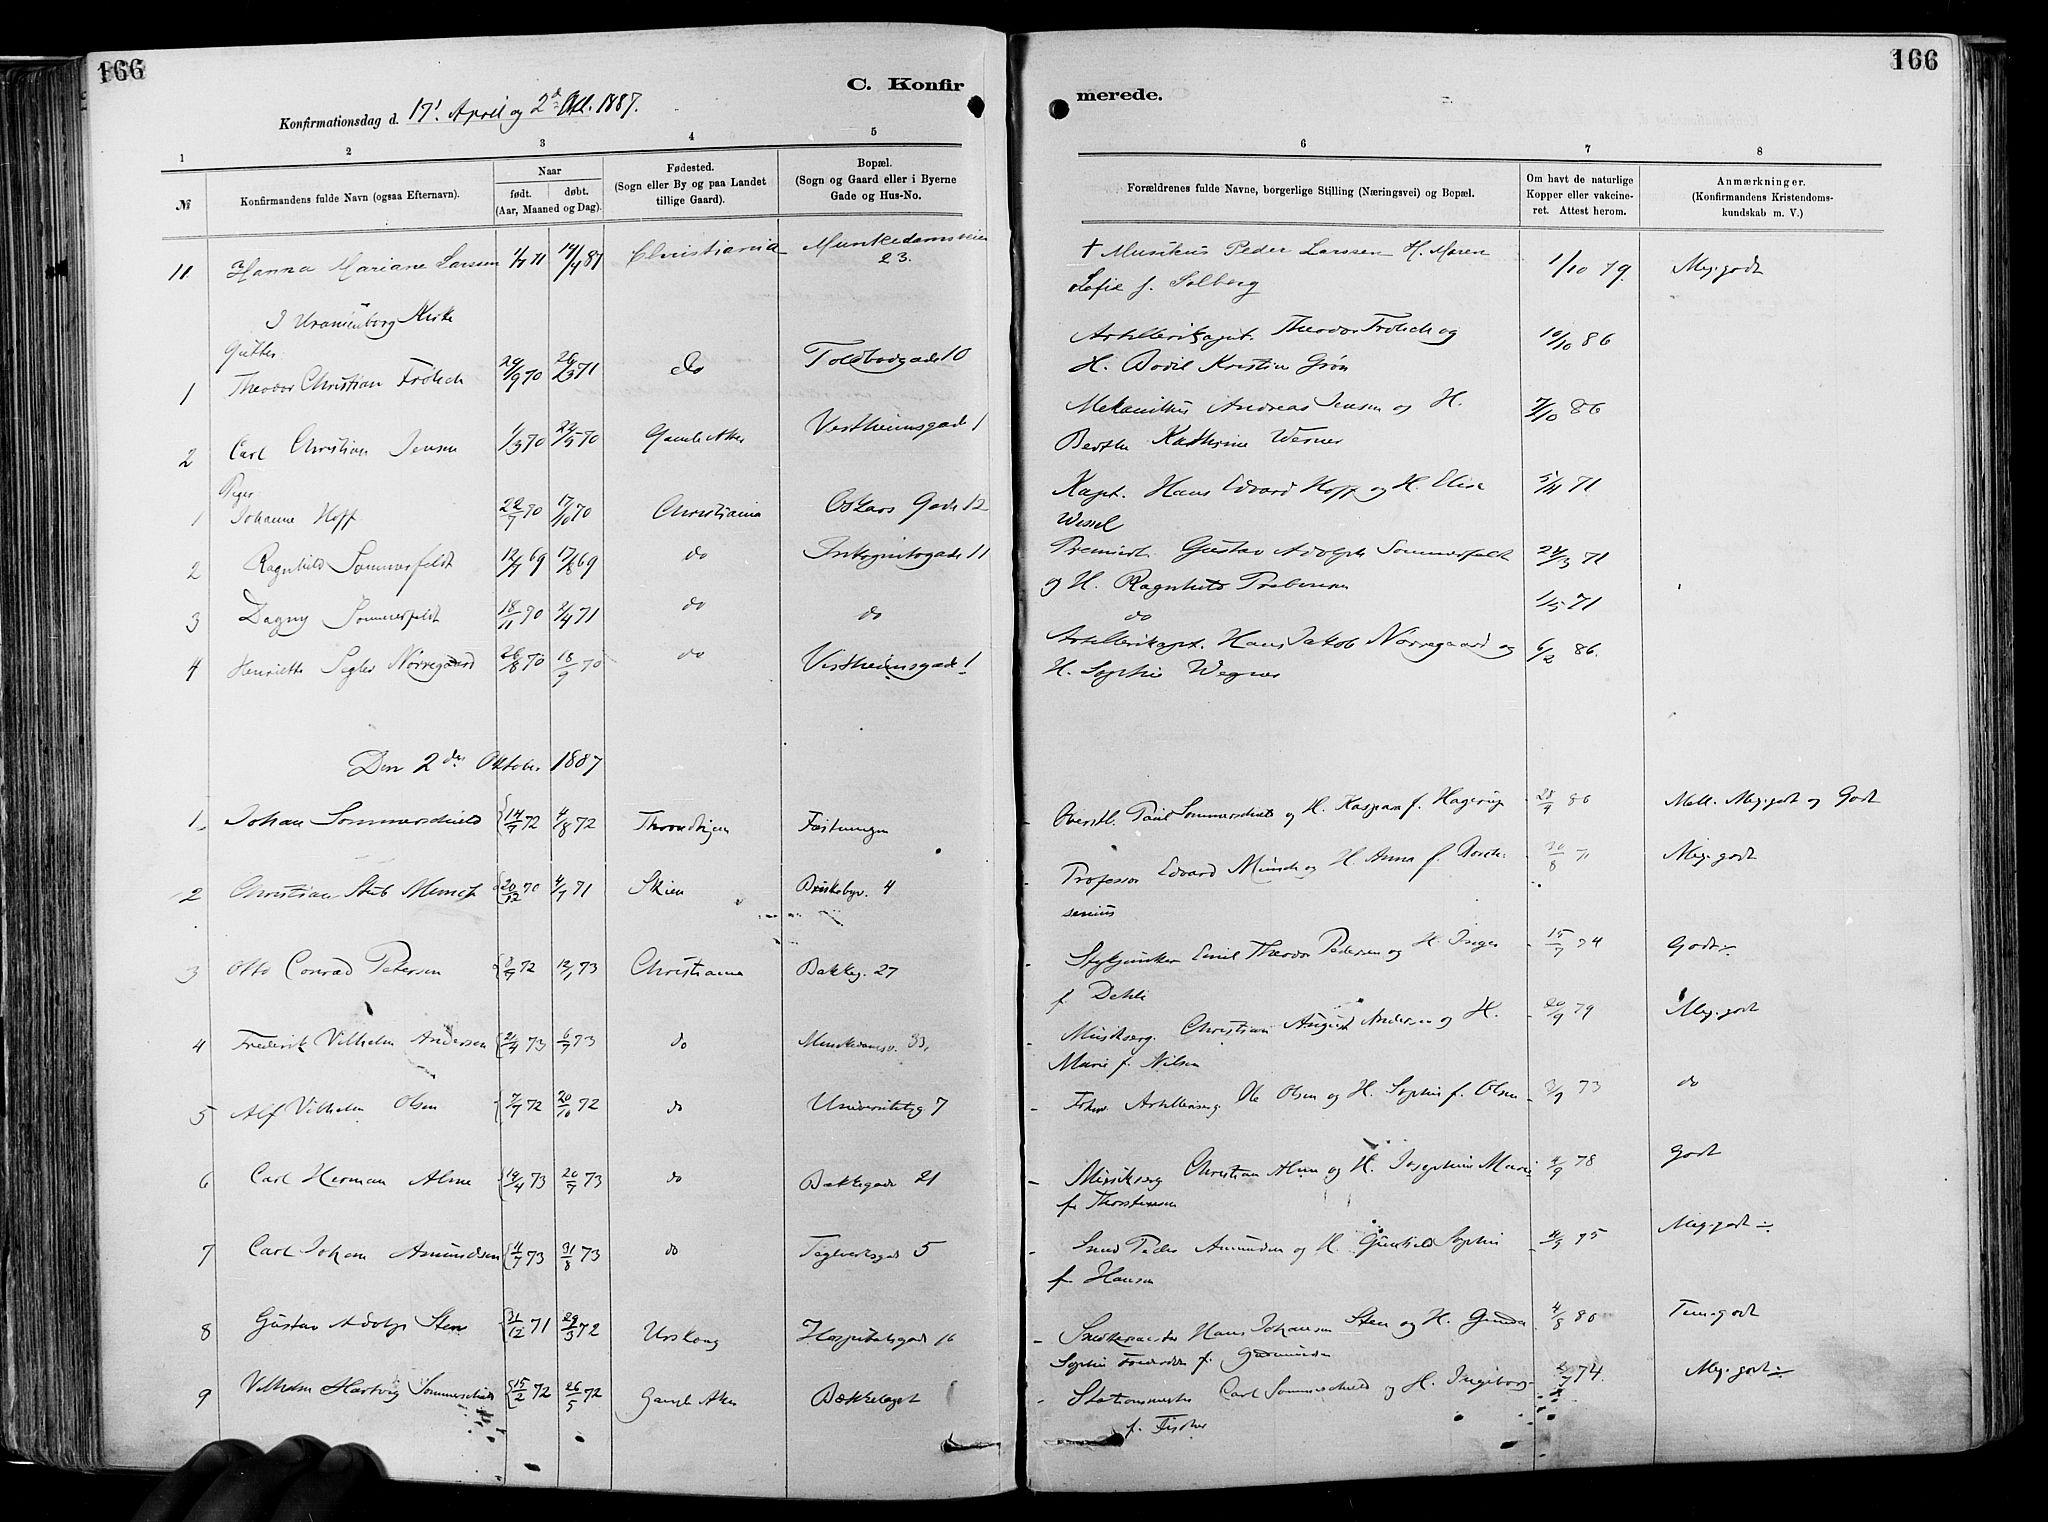 166
C. Konfir
Konfirmationsdag d. 17' April og 2d Okt. 1887.
1 2 3 4 5
№
Konfirmandens fulde Navn (ogsaa Efternavn).
Naar
født. døbt.
(Aar, Maaned og Dag).
Fødested.
(Sogn eller By og paa Landet
tillige Gaard).
Bopæl.
(Sogn og Gaard eller i Byerne
Gade og Hus-No.
11 Hanna Mariane Larsen 1/7 71 17/4 87 Christiania Munkedamsveien
23.
I Uranienborg Kirke
Gutter
1 Theodor Christian Frölich 29/9 70 26/3 71 do Toldbodgade 10
2 Carl Christian Jensen 1/3 70 29/5 70 Gamle Aker Vestheimsgade 1
Piger
1 Johanne Hoff 22/7 70 17/10 70 Christiania Oskars Gade 12
2 Ragnhild Sommerfeldt 12/7 69 17/8 69 do Inkognitogade 11
3 Dagny Sommerfeldt 18/11 70 2/4 71 do do
4 Henriette Segler Nörregaard 26/8 70 18/9 70 do Vestheimsgade 1
Den 2den Oktober 1887
1 Johan Sommerschield 14/7 72 4/8 72 Throndhjem Fæstningen
2 Christian Stub Munch 20/12 70 4/7 71 Skien Briskebyv. 4
3 Otto Conrad Petersen 2/7 72 12/1 73 Christiania Bakkeg. 27
4 Frederik Vilhelm Andersen 2/4 73 6/7 73 do Munkedamsv. 33,
5 Alf Vilhelm Olsen 7/7 72 20/10 72 do Universitetsg 7
6 Carl Herman Alme 14/4 73 20/7 73 do Bakkegade 21
7 Carl Johan Amundsen 4/7 73 31/8 73 do Teglverksgade 5
8 Gustav Adolf Sten 31/12 71 29/3 72 Urskoug Hospitalsgade 16
9 Vilhelm Hartvig Sommerschield 15/2 72 26/5 72 Gamle Aker Bækkelaget
166
merede.
6 7 8
Forældrenes fulde Navne, borgerlige Stilling (Næringsvei) og Bopæl.
Om havt de naturlige
Kopper eller vakcine-
ret. Attest herom.
Anmærkninger.
(Konfirmandens Kristendoms-
kundskab m. V.)
† Musikus Peder Larssen H. Maren 1/10 79. Meg. godt
Sofie f. Solberg
Artillerikapt. Theodor Frölich og 10/10 86
H. Bodil Kristine Grön
Mekanikus Andreas Jensen og H. 7/10 86
Berthe Kathrine Werner
Kapt. Hans Edvard Hoff og H. Elise 71
Wessel
Premierlt. Gustav Adolph Sommerfeldt 24/3 71
og H. Ragnhild Prebensen
do 1/5 71
Artillerikapt. Hans Jakob Nörregaard og 6/2 86.
H. Sophie Wegner
Oberstl. Paul Sommerschield og H. Kaspara f. Hagerup 28/9 86 Mell. Meg. godt og Godt
Professor Edvard Munch og H. Anna f. 20/8 71 Meg. godt
senius
Stykjunker Emil Theodor Pedersen og H. Inger 15/7 74 Godt ÷
f. Dehli
Musikserg. Christian August Andersen og H. 20/9 79 Meg. godt
Marie f. Nilsen
Artilleriserg. Ole Olsen og H. Sophie f. Olsen 3/9 73 do
Musikserg Christian Alme og H. Josephine Marie 4/9 78 Godt
f. Thorstensen
Smed Peder Amundsen og H. Gunhild Sophie 4/9 75 Meg. godt ÷
f. Hansen
Snedkermester Hans Johansen Sten og H. Gunda 4/8 80 Tem. godt
Sophie f.
Stationsmester Carl Sommerschield og H. Ingeborg 2/7 74. Meg. godt ÷
f. Fischer